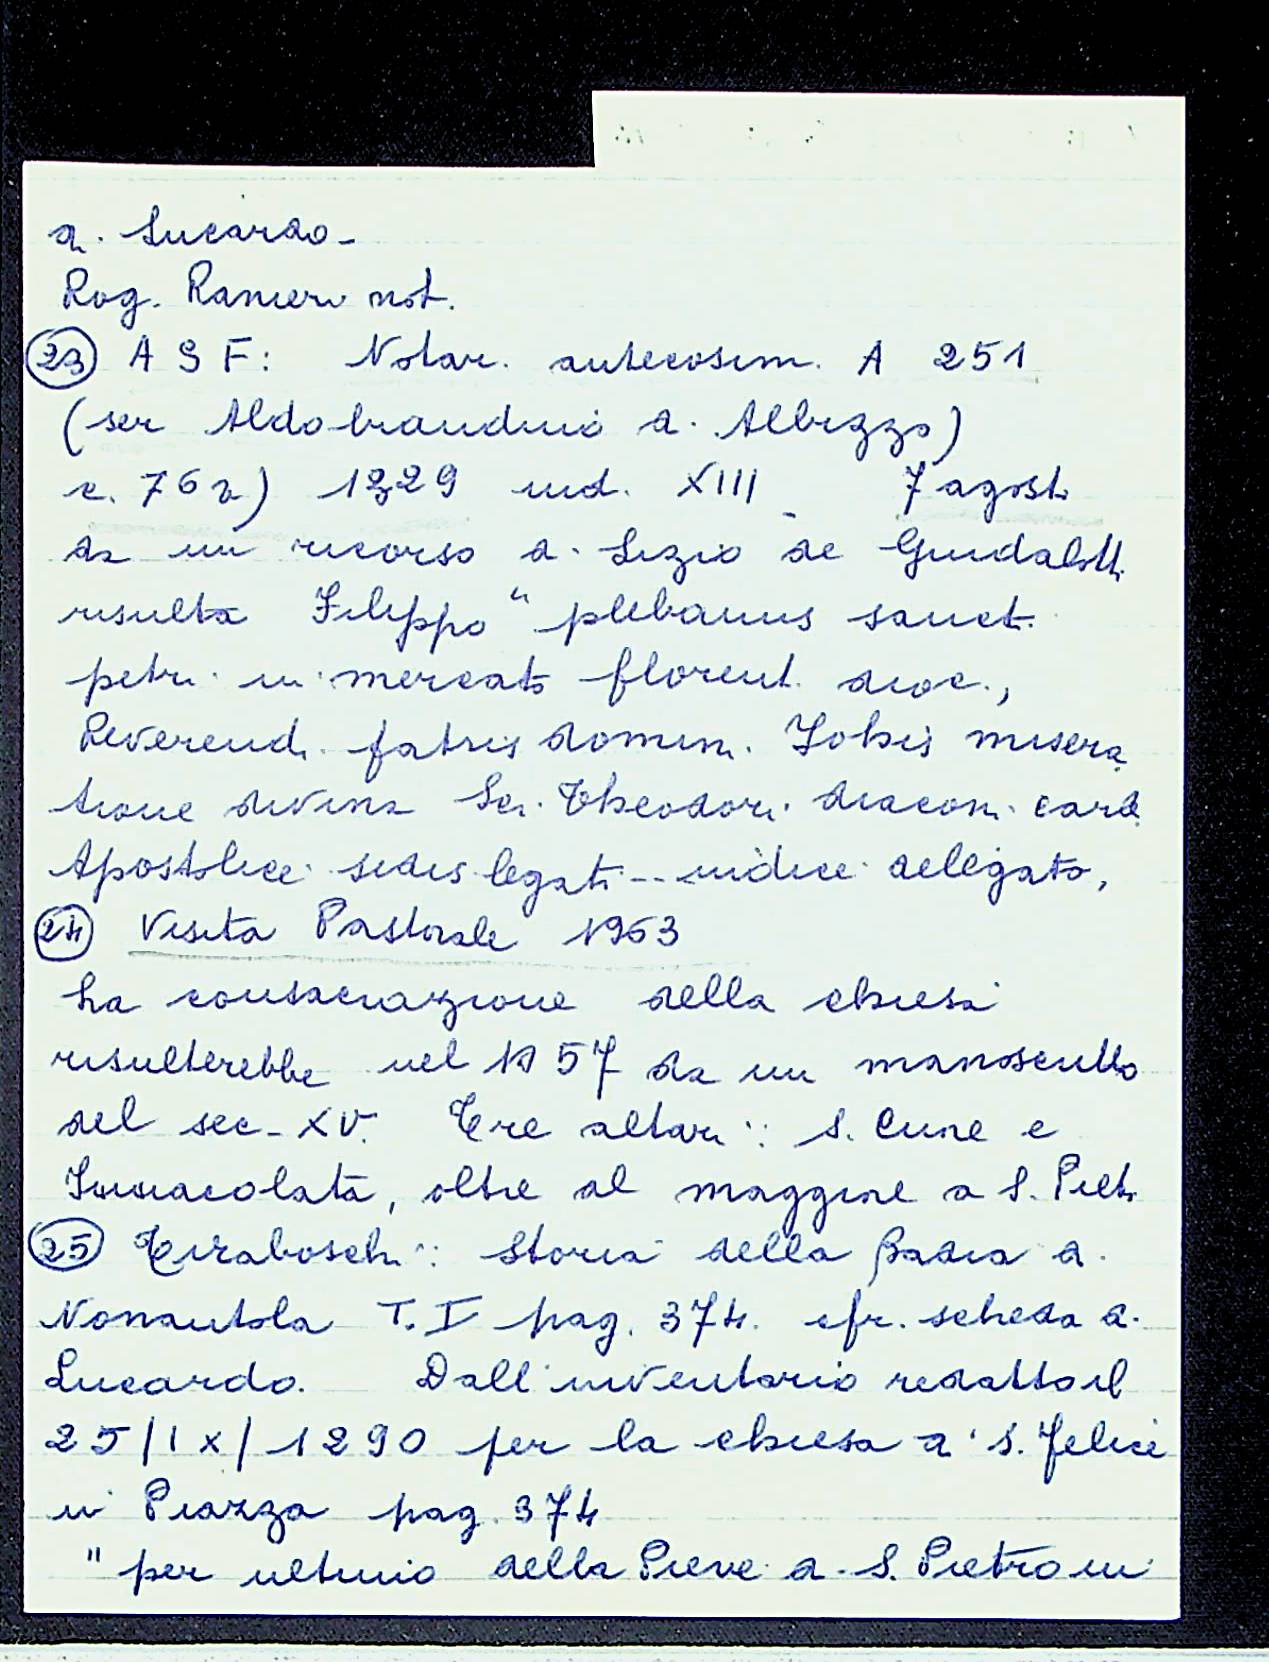 di Lucardo -
Rog. Ranieri not.
(23) A S F: Notar. antecosim. A 251
(ser Aldobrandino di Albizzo)
c. 76 r) 1329 ind. XIII 7 agost.
da un ricorso di Lizio de Guidalott.
risulta Filippo " plebanus sanct.
petri in mercato florent. dioc.,
Reverend. patris domin. Johis misera
tione divina Sci. Theodori diacon. card.
Apostolice sedis legati -- iudice delegato,
(24) Visita Pastorale 1963
La consacrazione della chiesa
risulterebbe nel 1057 da un manoscritto
del sec. XV. Tre altari: S. Cuore e
Immacolata, oltre al maggiore a S. Pietr.
(25) Tiraboschi: Storia della Badia di
Nonantola T. I pag. 374. cfr. scheda di
Lucardo. Dall'inventario redatto il
25/IX/1290 per la chiesa di S. Felice
in Piazza pag. 374
" per ultimo della Pieve di S. Pietro in